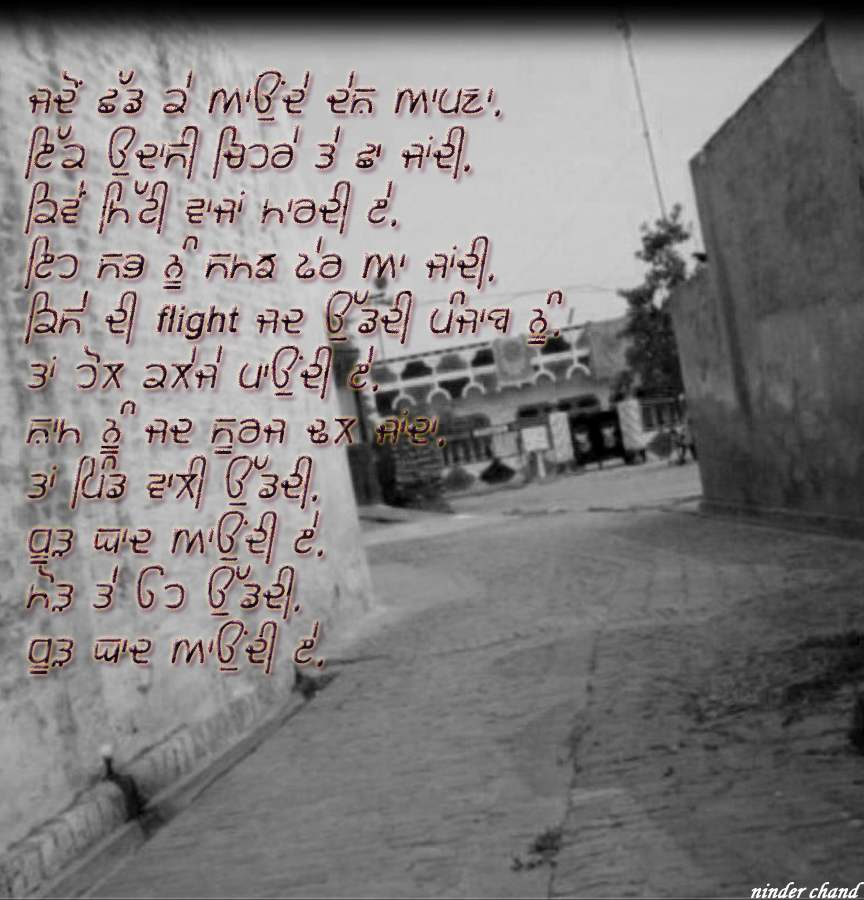 ਜਦੋਂ ਛੱਡ ਕੇ ਆਉਂਦੇ ਦੇਸ਼ ਆਪਣਾ.
ਇੱਕ ਉਦਾਸੀ ਚਿਹਰੇ ਤੇ ਛਾ ਜਾਂਦੀ.
ਕਿਵੇਂ ਮਿੱਟੀ ਵਾਜਾਂ ਮਾਰਦੀ ਏ.
ਇਹ ਸਭ ਨੂੰ ਸਮਝ ਫੇਰ ਆ ਜਾਂਦੀ.
ਕਿਸੇ ਦੀ flight ਜਦ ਉੱਡਦੀ ਪੰਜਾਬ ਨੂੰ.
ਤਾਂ ਹੋਲ ਕਲੇਜੇ ਪਾਉਂਦੀ ਏ.
ਸ਼ਾਮ ਨੂੰ ਜਦ ਸੂਰਜ ਢਲ ਜਾਂਦਾ.
ਤਾਂ ਪਿੰਡ ਵਾਲੀ ਉੱਡਦੀ.
ਧੂੜ ਯਾਦ ਆਉਂਦੀ ਏ.
ਮੋੜ ਤੇ ਓਹ ਉੱਡਦੀ.
ਧੂੜ ਯਾਦ ਆਉਂਦੀ ਏ.
ninder chand